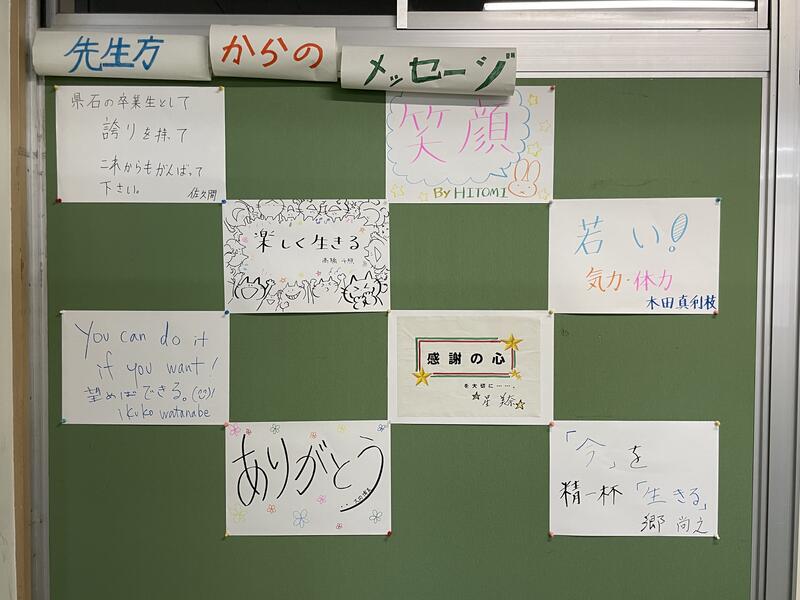 先生方
からの
メッセージ
県石の卒業生として
誇りを持って
これからもがんばって
下さい。
佐久間
笑顔
By HITOMI
楽しく生きる
若い!
気力・体力
木田真利枝
You can do it
if you want!
望めばできる。(^^)!
ikuko watanabe
感謝の心
を大切に……。
星 美奈
ありがとう
「今」を
精一杯「生きる」
郷 尚之